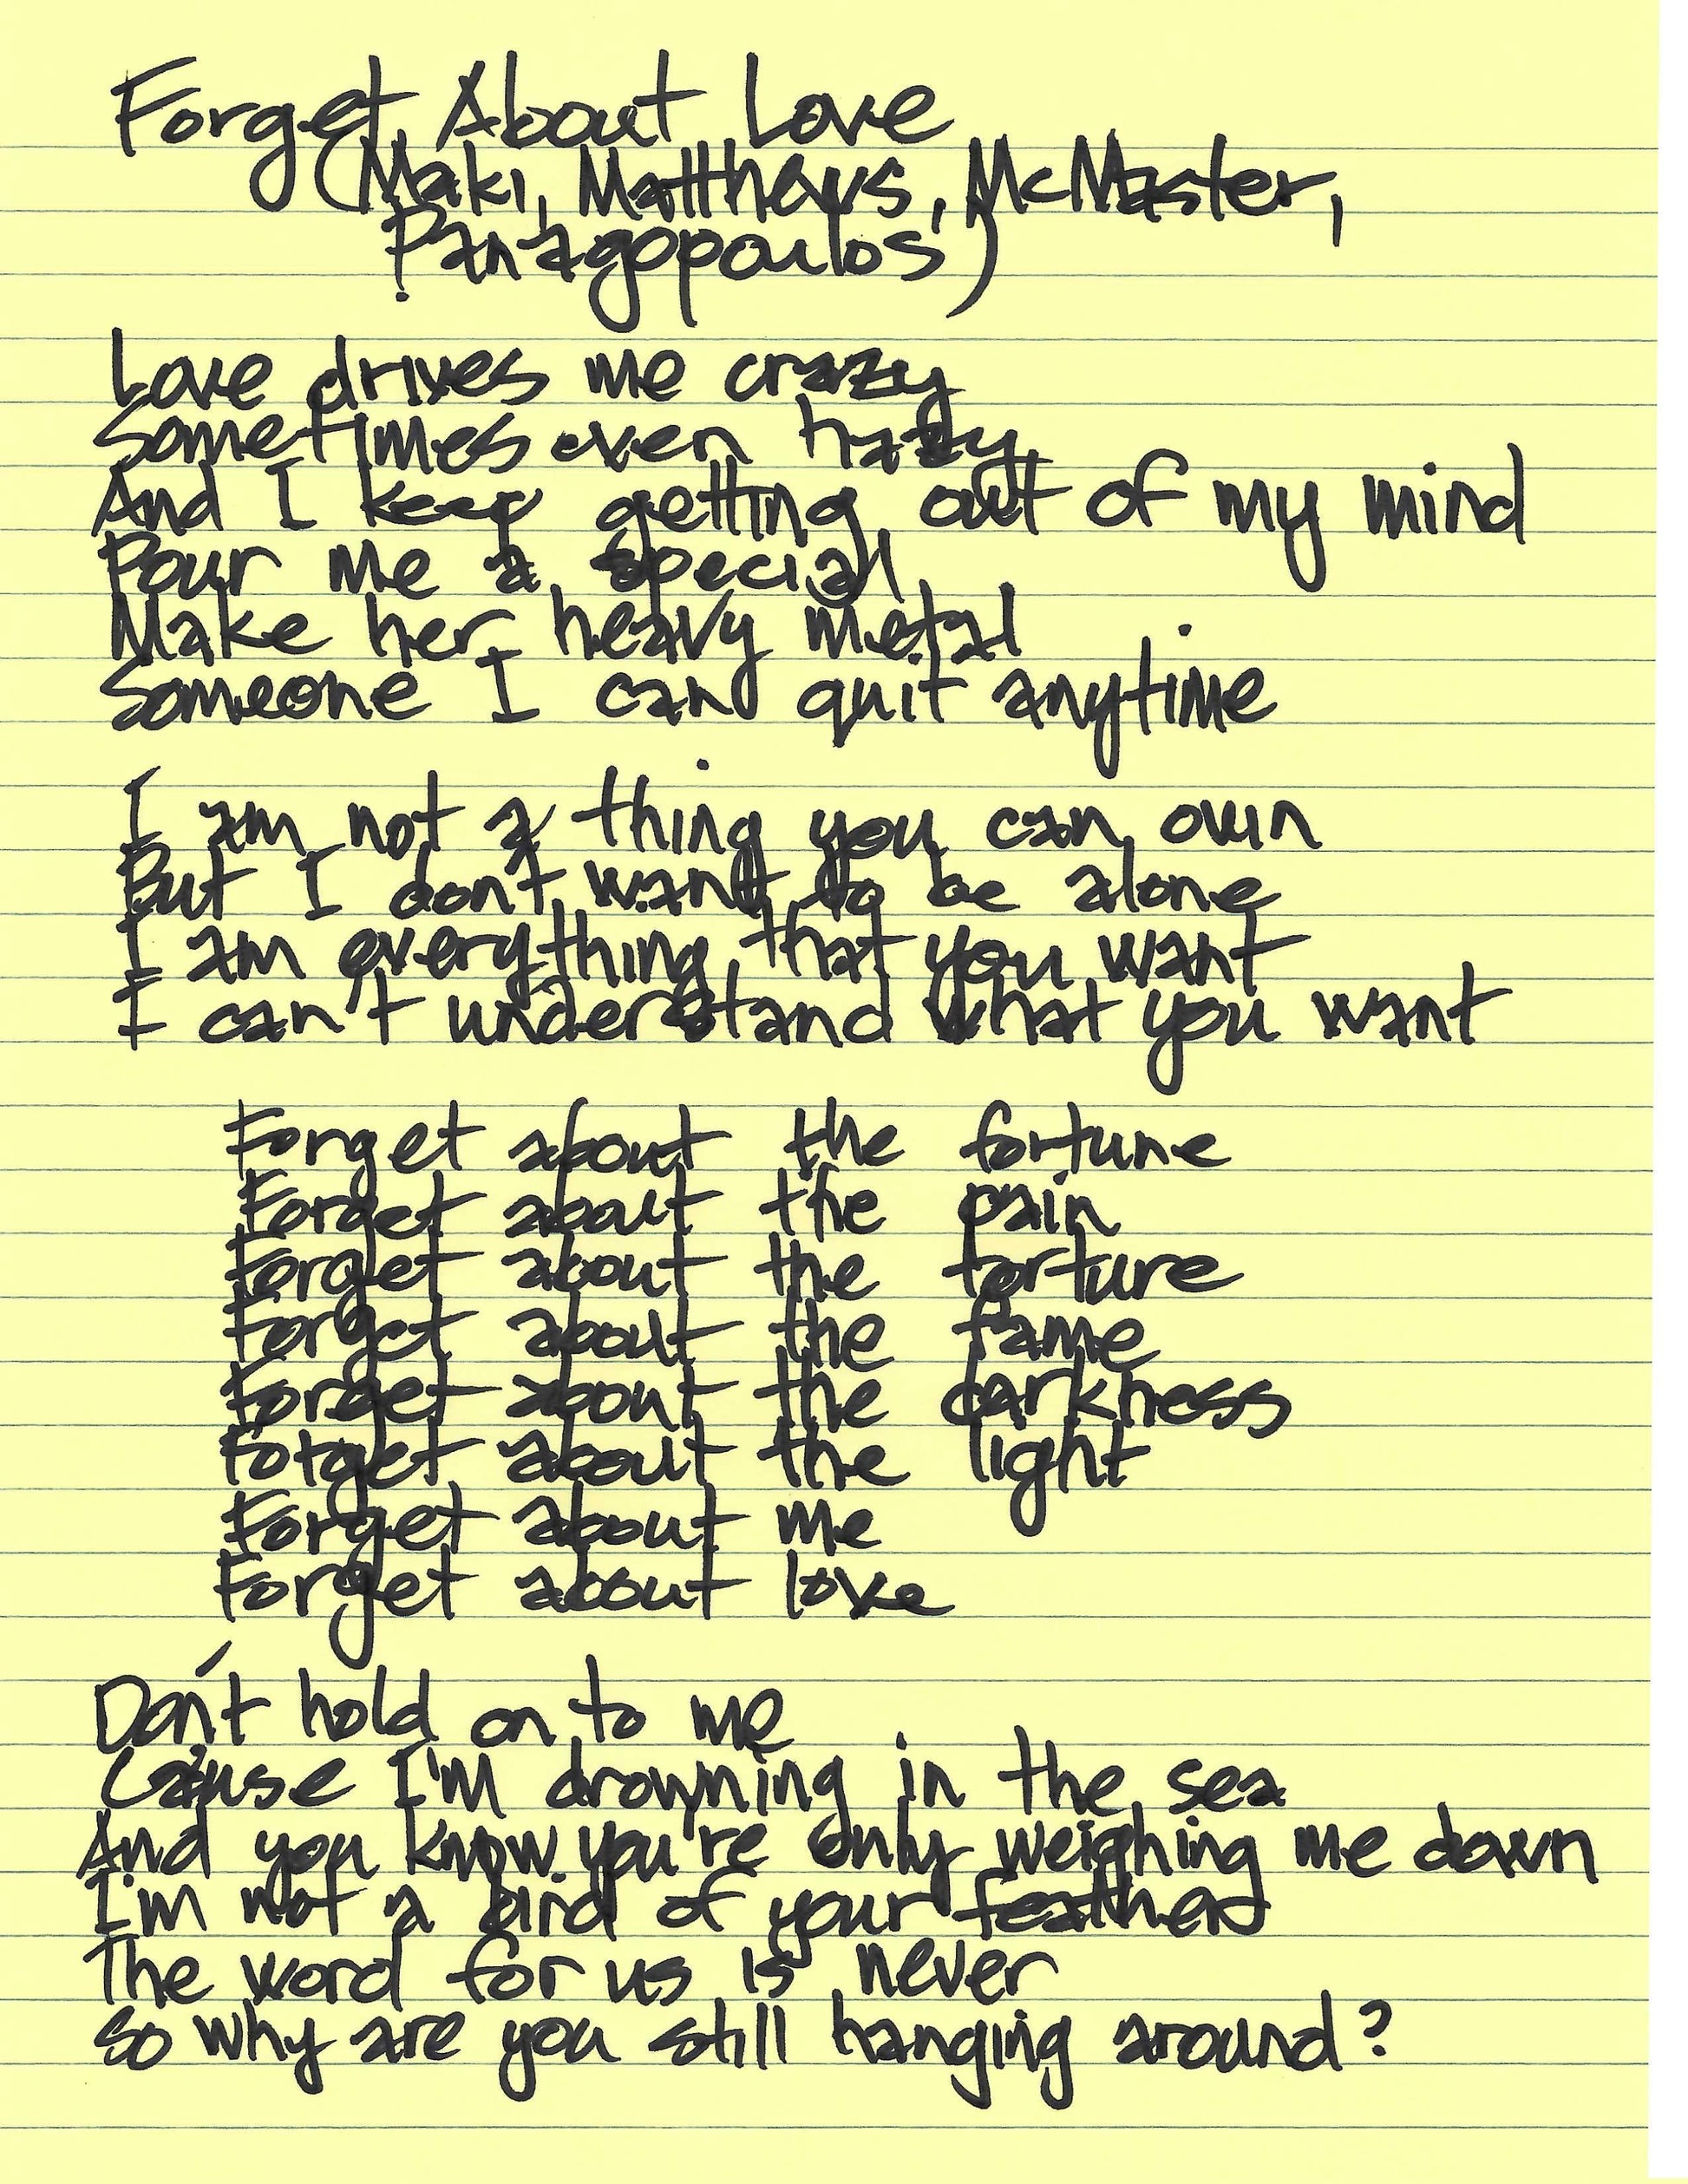 Forget About Love
(Maki, Matthews, McMaster,
Panagopoulos)
Love drives me crazy
Sometimes even hazy
And I keep getting out of my mind
Pour me a special
Make her heavy metal
Someone I can quit anytime
I am not a thing you can own
But I don't want to be alone
I am everything that you want
I can't understand what you want
Forget about the fortune
Forget about the pain
Forget about the torture
Forget about the fame
Forget about the darkness
Forget about the light
Forget about me
Forget about love
Don't hold on to me
Cause I'm drowning in the sea
And you know you're only weighing me down
I'm not a bird of your feather
The word for us is never
So why are you still hanging around?